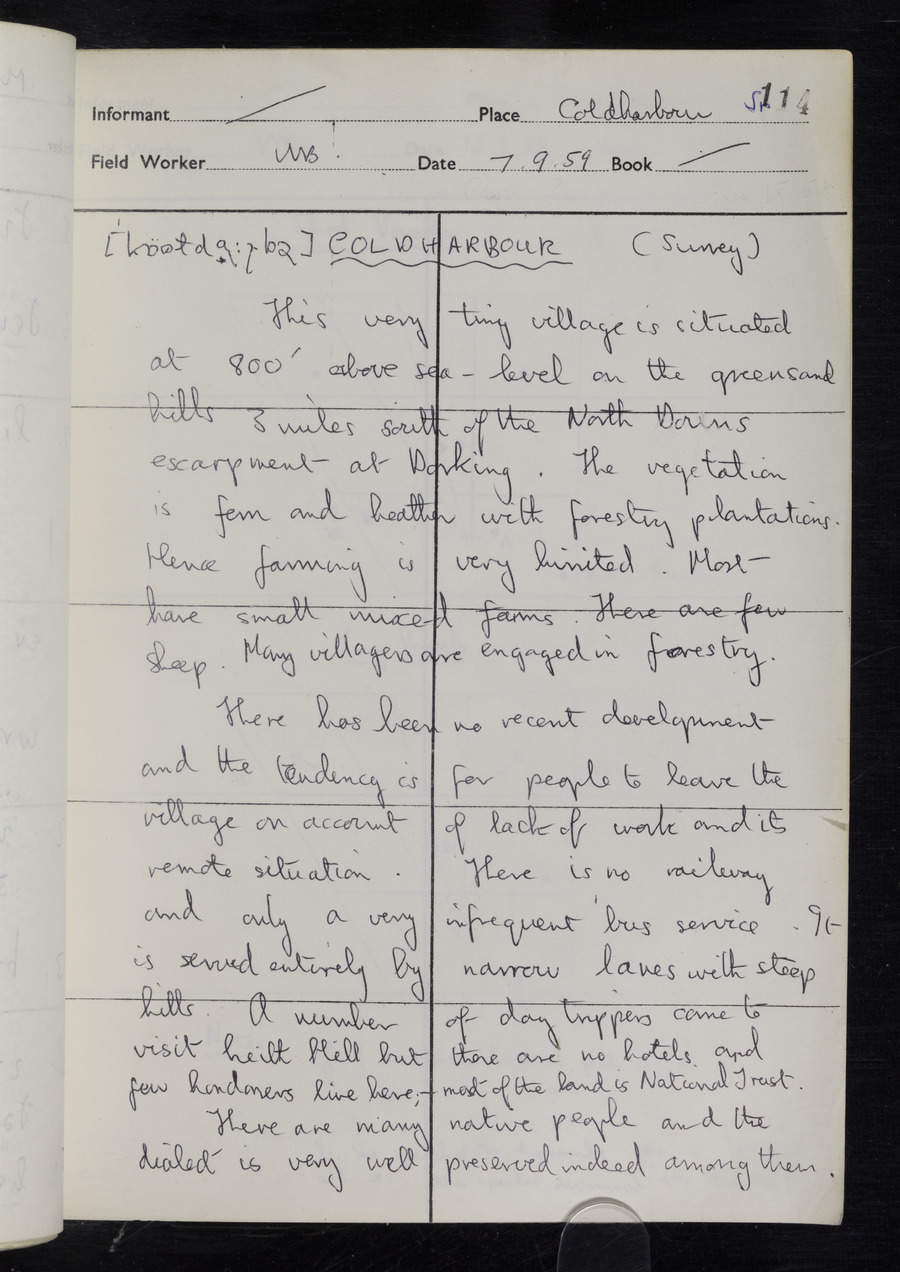 Informant Place Coldharbour Sr 114
Field Worker Date 7.9.59 Book
COLDHARBOUR (Surrey)
This very tiny village is situated
at 800' above sea-level on the greensand
hills 3 miles south of the North Downs
escarpment at Dorking. The vegetation
is fern and heather with forestry plantations.
Hence farming is very limited. Most
have small mixed farms. There are few
sheep. Many villagers are engaged in forestry.
There has been no recent development
and the tendency is for people to leave the
village on account of lack of work and its
remote situation. There is no railway
and only a very infrequent bus service. It
is served entirely by narrow lanes with steep
hills. A number of day trippers come to
visit Leith Hill but there are no hotels and
few londoners live here; most of the land is National Trust.
There are many native people and the
dialect is very well preserved indeed among them.